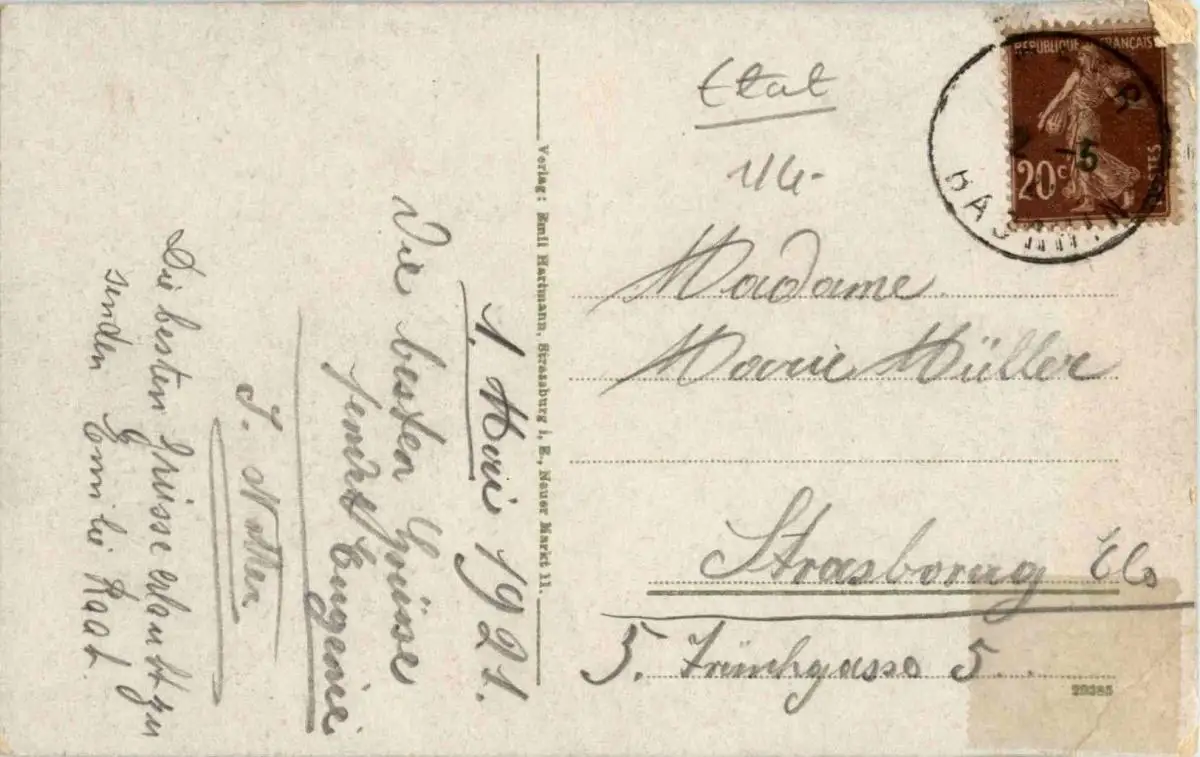 1. Mai 1921.
Die besten Grüsse
sendet Eugenie
J.
Die besten Grüsse erlaubt zu
senden Emilie Raat.
Verlag: Emil Hartmann, Strassburg i. E., Neuer Markt 11.
Etat
REPUBLIQUE FRANÇAISE
20c
POSTES
-5
BAS-RHIN
Madame
Marie Müller
Strasbourg Els
5. 5.
29385